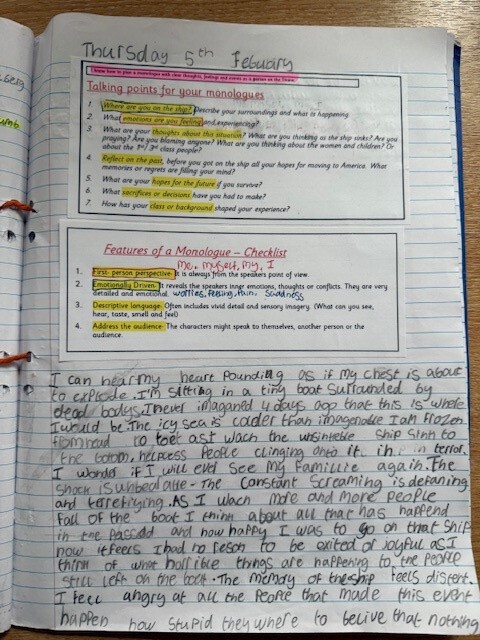 Thursday 5th Febuary
I know how to plan a monologue with view thoughts, feelings and events as a person on the Titanic.
Talking points for your monologues
1. Where are you on the ship? Describe your surroundings and what is happening.
2. What emotions are you feeling and experiencing?
3. What are your thoughts about this situation? What are you thinking as the ship sinks? Are you
praying? Are you blaming anyone? What are you thinking about the women and children? Or
about the 1st/ 3rd class people?
4. Reflect on the past, before you got on the ship all your hopes for moving to America. What
memories or regrets are filling your mind?
5. What are your hopes for the future if you survive?
6. What sacrifices or decisions have you had to make?
7. How has your class or background shaped your experience?
Features of a Monologue – Checklist
me, myself, my, I
1. First- person perspective- It is always from the speakers point of view.
2. Emotionally Driven- It reveals the speakers inner emotions, thoughts or conflicts. They are very
detailed and emotional. worries, feeling, pain, sadness
3. Descriptive language- Often includes vivid detail and sensory imagery. (What can you see,
hear, taste, smell and feel)
4. Address the audience- The characters might speak to themselves, another person or the
audience.
I can hear my heart pounding as if my chest is about
to explode. I'm sitting in a tiny boat surrounded by
dead bodys. I never imagined 4 days ago that this is where
I would be. The icy sea is colder than imagenable I am frozen
from head to toe as I wach the ship sink to
the botom, helpess people clinging onto it in terror.
I wonder if I will ever see my famillie again. The
shock is - The constant screaming is defaning
and terefiying. AS I wach more and more people
fall of the boat I think about all that has happend
in the passed and how happy I was to go on that ship
now it feels I had no reson to be exited or joyful as I
think of what horrible things are happening to the people
still left on the boat. The memory of the ship feels distent.
I feel angry at all the people that made this event
happen how stupid they where to belive that nothing